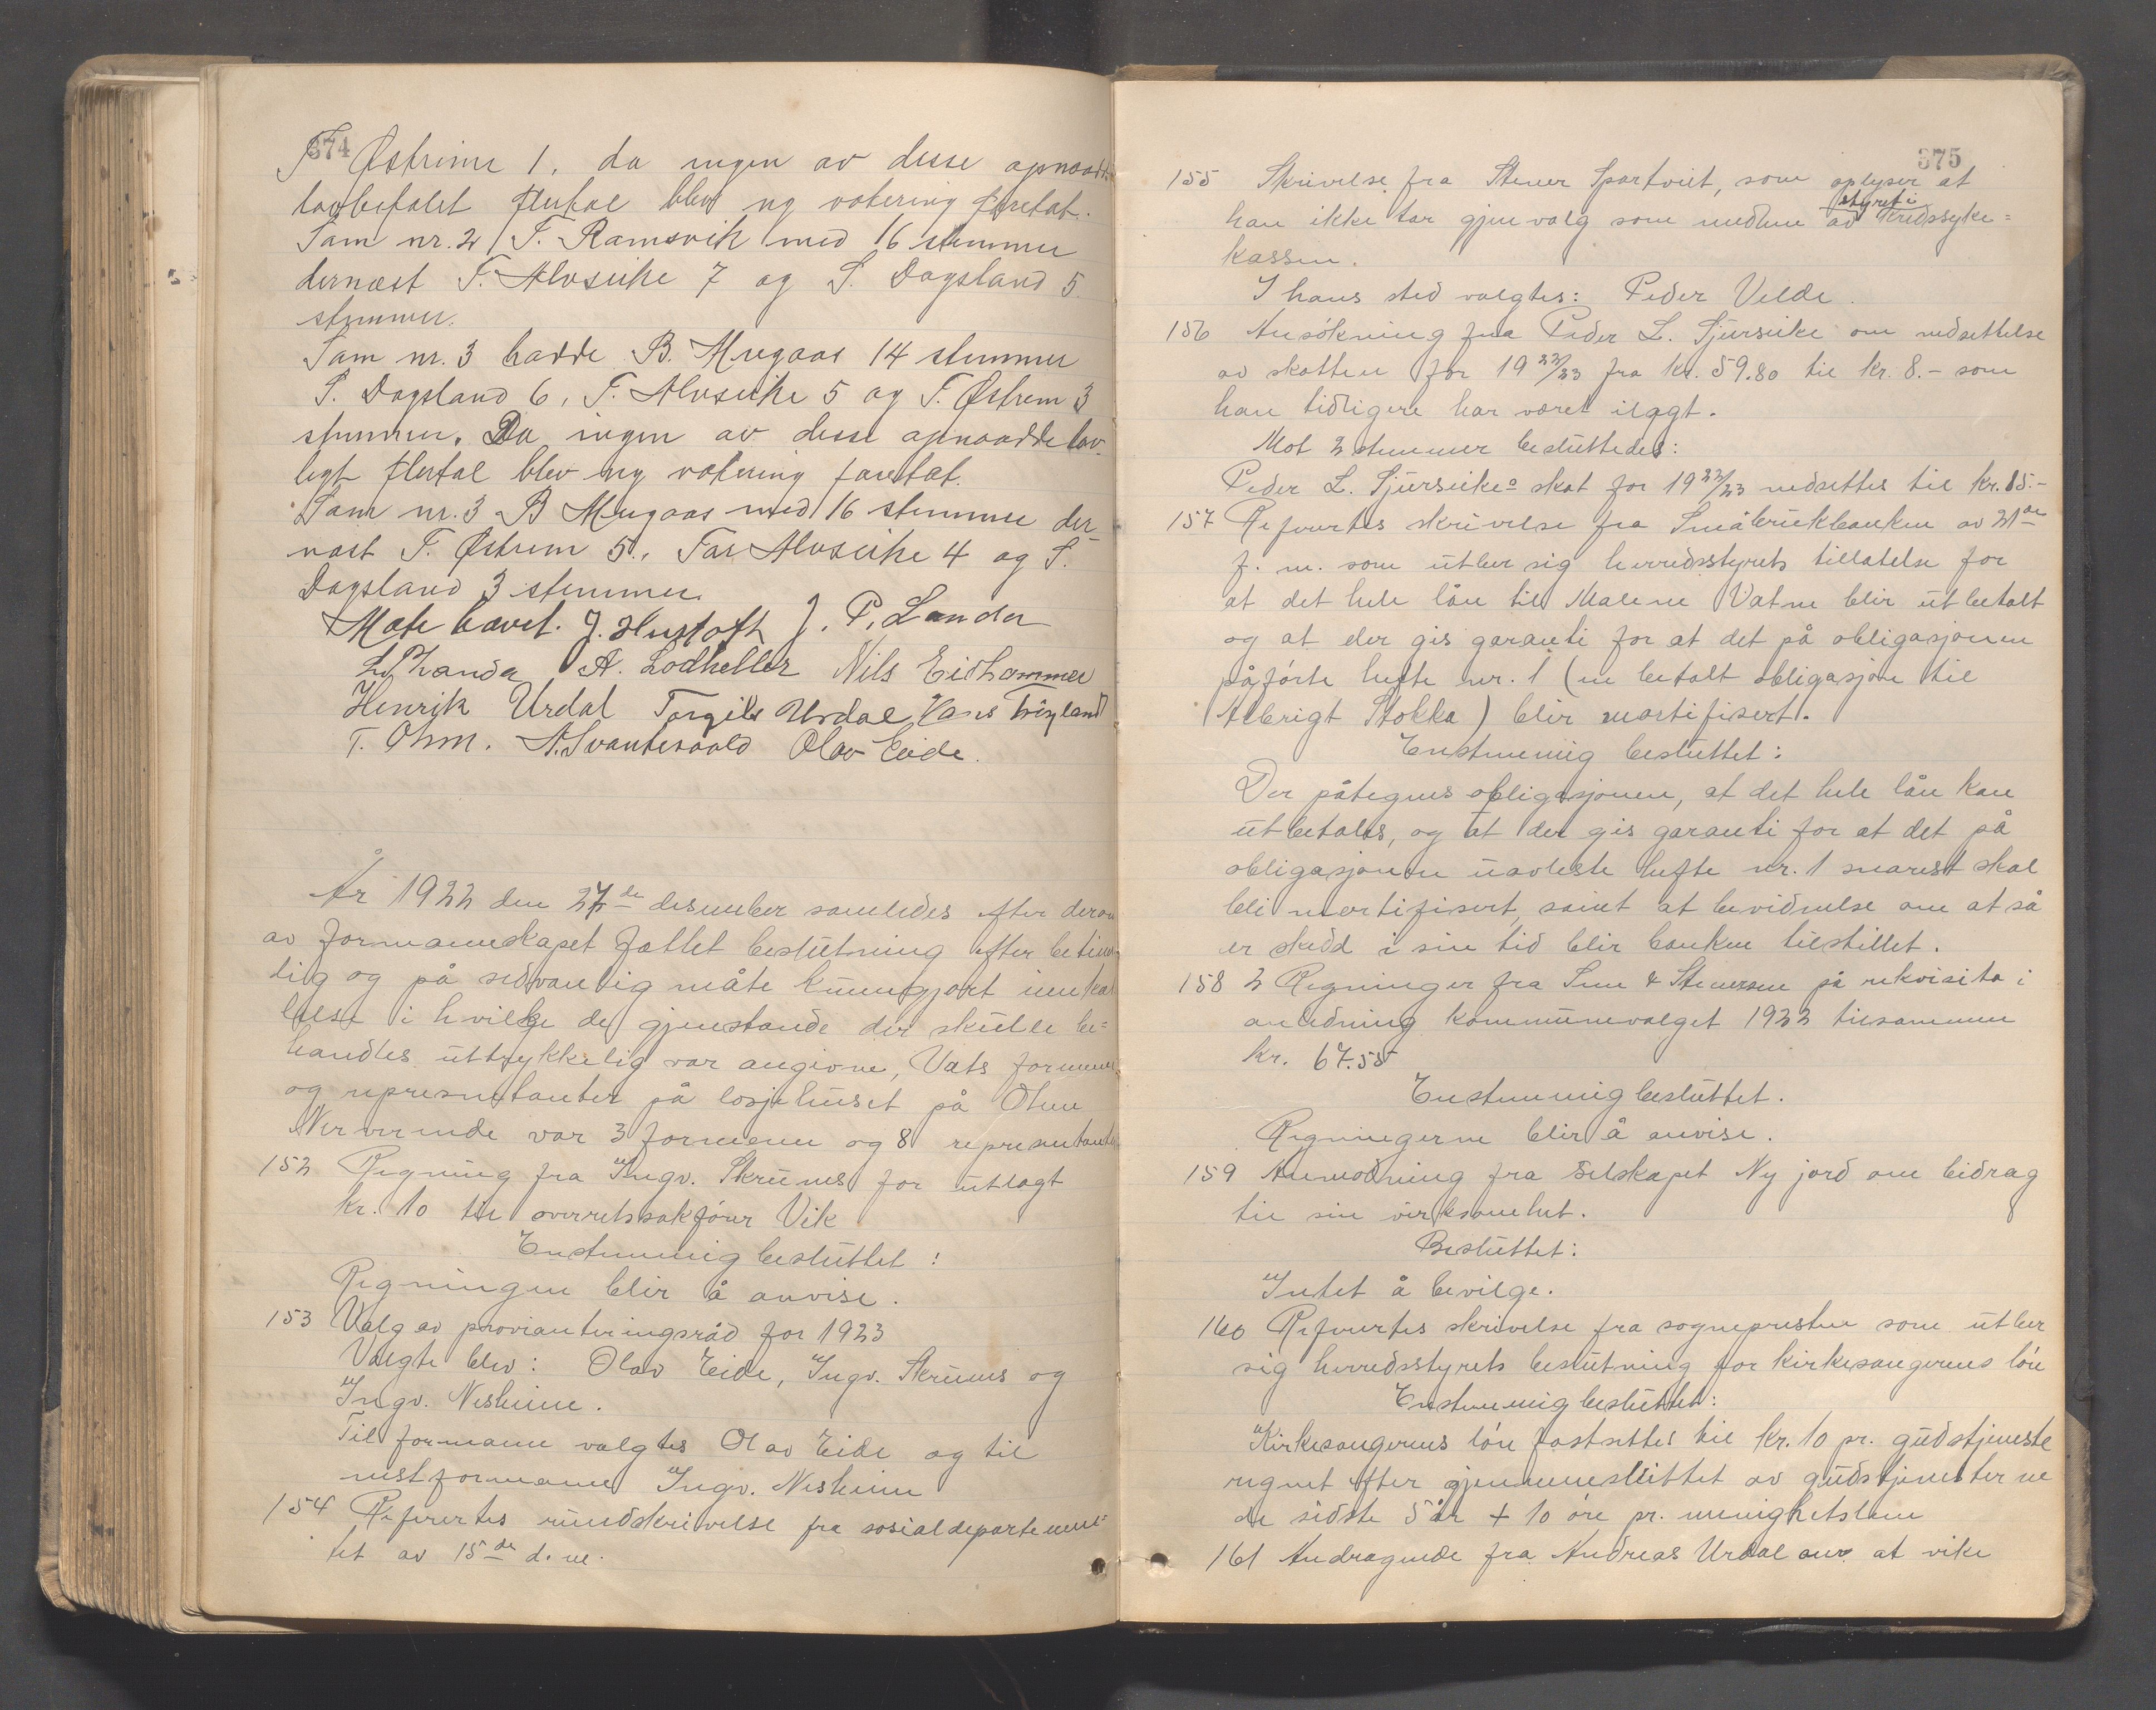 374
T. Østrem 1. da ingen av disse opnaadde
lovbefalet flertal blev ny votering foretat.
Som nr. 2 T. Ramsvik med 16 stemmer
dernæst T. Alvseike 7 og S. Dagsland 5
stemmer.
Som nr. 3 hadde B. Mugaas 14 stemmer
S. Dagsland 6, T. Alvseike 5 og T. Østrem 3
stemmer. Da ingen av disse opnaadde lov-
ligt flertal blev ny votering foretat.
Som nr. 3 B Mugaas med 16 stemmer der-
næst T. Østrem 5., Tas Alvseike 4 og S.
Dagsland 3 stemmer.
Møte hævet. J. Hustoft J. P. Landa
L. Landa A. Lodheller Nils Eidhammer
Henrik Urdal Torgils Urdal Hans Frøland
T. Ohm. A. Svantesvold Olav Eide.
År 1922 den 27de desember samledes efter derom
av formannskapet fattet beslutning efter betime-
lig og på sedvanlig måte kunngjort innkal
lelse i hvilke de gjenstande der skulle be=
handles uttrykkelig var angivne, Vats formenn
og representanter på losjehuset på Ølen
Nærværende var 3 formenn og 8 representanter
152 Regning fra Ingv. Skrunes for utlagt
kr. 10 til overretssakfører Vik
Enstemmig besluttet:
Regningen blir å anvise.
153 Valg av provianteringsråd for 1923
Valgte blev: Olav Eide, Ingv. Skrunes og
Ingv. Nesheim.
Til formann valgtes Olav Eide og til
nestformann Ingv. Nesheim
154 Refertes rundskrivelse fra sosialdepartemen=
tet av 15de d. m.
375
155 Skrivelse fra Stener Sportveit, som oplyser at
styret i
han ikke tar gjenvalg som medlem av Kredssyke=
kassen.
I hans sted valgtes: Peder Velde.
156 Ansøkning fra Peder L. Sjurseike om nedsettelse
av skatten for 1922/23 fra kr. 59.80 til kr. 8.- som
han tidligere har været ilagt.
Mot 2 stemmer besluttedes:
Peder L. Sjurseikes skat for 1922/23 nedsettes til kr. 15.-
157 Refertes skrivelse fra Småbrukbanken av 21de
f. m. som utber sig herredsstyrets tillatelse for
at det hele lån til Malene Vatne blir utbetalt
og at der gis garanti for at det på obligasjonen
påførte hefte nr. 1 (en betalt obligasjon til
Albrigt Stokka) blir mortifisert.
Enstemmig besluttet:
Der påtegnes obligasjonen, at det hele lån kan
utbetales, og at der gis garanti for at det på
obligasjonen uavleste hefte nr. 1 snarest skal
bli mortifisert, samt at bevidnelse om at så
er skedd i sin tid blir banken tilstillet.
158 2 Regninger fra Sem & Stenersen på rekvisita i
anledning kommunevalget 1922 tilsammen
kr. 67.55
Enstemmig besluttet.
Regningerne blir å anvise.
159 Anmodning fra selskapet Ny jord om bidrag
til sin virksomhet.
Besluttet:
Intet å bevilge.
160 Refertes skrivelse fra sogneprsten som utber
sig herredsstyrets beslutning for kirkesangerens løn
Enstemmig besluttet:
Kirkesangerens løn fastsettes til kr. 10 pr. gudstjeneste
regnet efter gjennemsnittet av gudstjenesterne
de sidste 5 år + 10 øre pr. menighetslem
161 Andragende fra Andreas Urdal om at vike